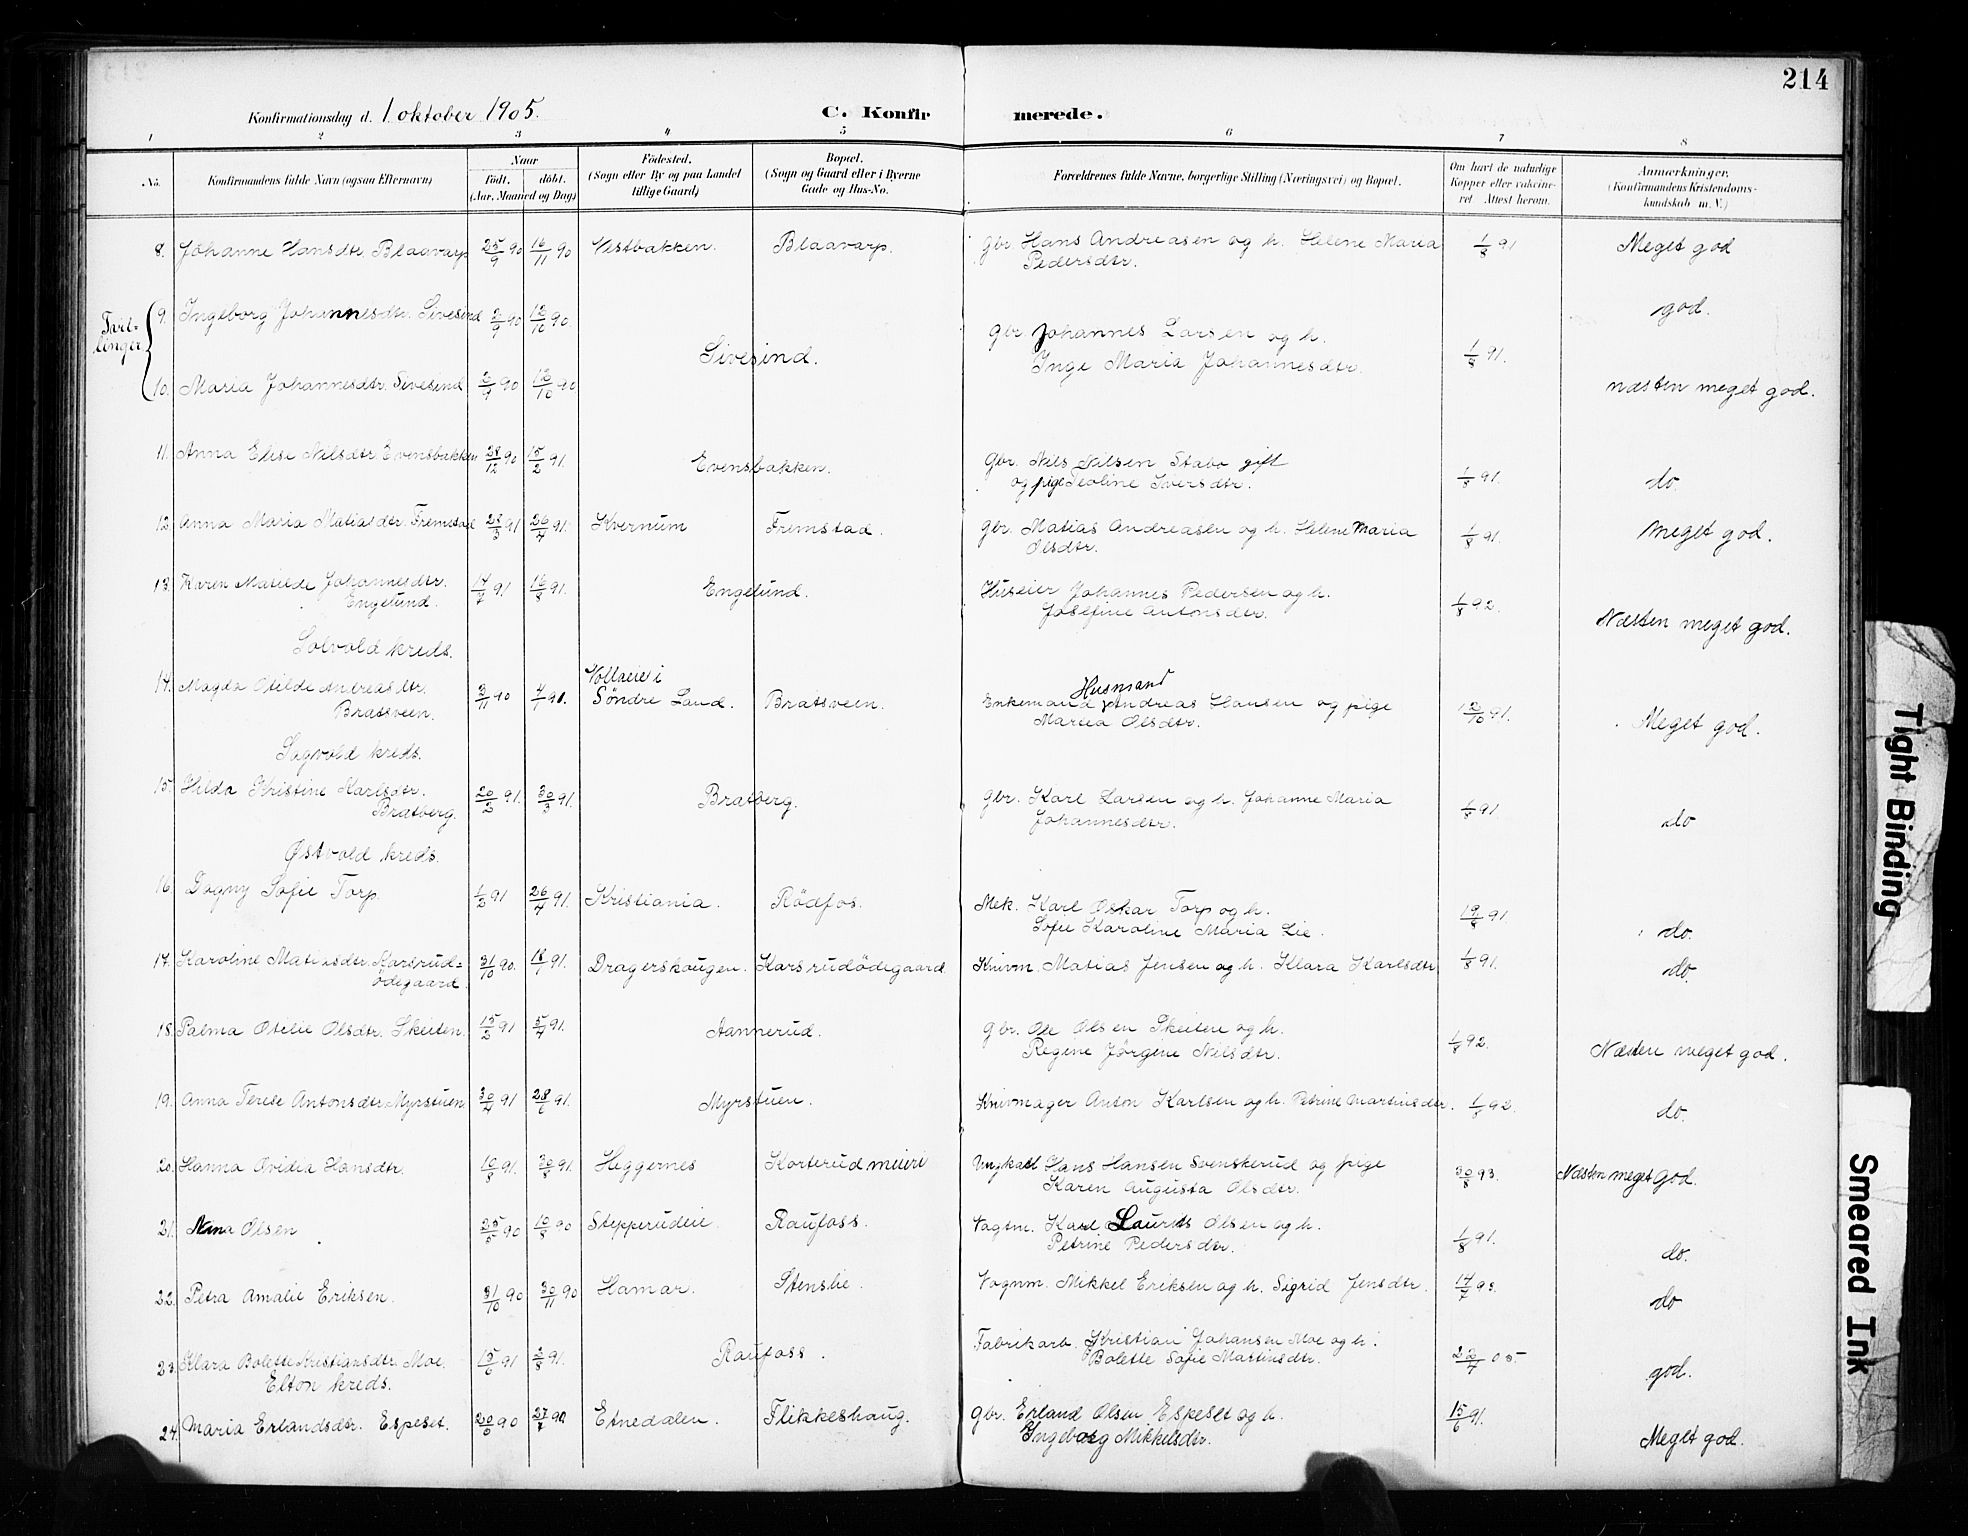 214
Konfirmationsdag d. 1 oktober 1905.
C. Konfirmerede.
1 2 3 4 5 6 7 8
No.
Konfirmandens fulde Navn (ogsaa Efternavn)
Naar
födt. döbt.
(Aar, Maaned og Dag)
Födested.
(Sogn eller By og paa Landet
tillige Gaard)
Bopæl.
(Sogn og Gaard eller i Byerne
Gade og Hus-No.
Forældrenes fulde Navne, borgerlige Stilling (Næringsvei) og Bopæl.
Om havt de naturlige
Kopper eller vakcine-
ret Attest herom.
Anmærkninger.
(Konfirmandens Kristendoms-
kundskab m. V.)
8. Johanne Hansdtr Blaavarp 25/9 90 16/11 90 Vestbakken. Blaavarp. Gbr. Hans Andreasen og h. Helene Maria 1/8 91 Meget god
Pedersdtr.
Tvil-
linger
9. Ingeborg Johannesdtr. Sivesind 2/9 90 12/10 90. god.
Sivesind. Gbr. Johannes Larsen og h.
Inge Maria Johannesdtr. 1/8 91.
10. Maria Johannesdtr. Sivesind 2/9 90 12/10 90 næsten meget god.
11. Anna Elise Nilsdtr Evensbakken 28/12 90 15/2 91. Evensbakken. Gbr. Nils Nilsen Stabo gift
og pige Teoline Iversdtr. 1/8 91. do.
12. Anna Maria Matiasdtr. Fremstad 28/3 91 26/4 91. Kvernum Fremstad. Gbr. Matias Andreasen og h. Helene Maria 1/8 91. Meget god.
Olsdtr.
13. Karen Matilde Johannesdtr. 14/7 91 16/8 91. Engelund. Huseier Johannes Pedersen og h.
Engelund. Josefine Antonsdtr. 1/8 92. Næsten meget god.
Solvold kreds.
14. Magda Otilde Andreasdtr. 3/11 90 4/1 91. Vollaeie i
Søndre Land. Bratsveen. Husmand
Enkemand Andreas Hansen og pige 12/10 91. Meget god.
Bratsveen. Martea Olsdtr.
Sagvold kreds.
15. Hilda Kristine Karlsdtr. 20/2 91. 30/3 91. Bratberg. Gbr. Karl Larsen og h. Johanne Maria 1/8 91. do
Bratberg. Johannesdtr.
Østvold kreds.
16. Dagny Sofie Torp. 1/2 91 26/4 91. Kristiania. Rödfos. Mek. Karl Oskar Torp og h. 19/8 91. do.
Sofie Karoline Maria Lie.
17. Karoline Matiasdtr. Karsrud= 31/10 90. 18/1 91. Dragerskaugen. Karsrudödegaard Knivm. Matias Jensen og h. Klara Karlsdtr 1/8 91. do.
ödegaard.
18. Palma Otilie Olsdtr. Skeiten. 15/2 91 5/4 91. Hannerud. Gbr. Ole Olsen Skeiten og h.
Regine Jörgine Nilsdtr. 1/8 92. Næsten meget god.
19. Anna Terese Antonsdtr. Myrstuen 30/4 91 28/6 91. Myrstuen. Knivmager Anton Karlsen og h. Petrine Martinsdtr. 1/8 92. do.
20. Hanna Ovidia Hansdtr. 10/8 91. 30/8 91. Heggernes Korterud meieri Ungkall Hans Hansen Svenskerud og pige 30/8 93. Næsten meget god.
Karen Augusta Olsdtr.
21. Nana Olsen 25/5 90 10/8 90 Stepperudeie. Raufoss. Vagtm. Karl Laurits Olsen og h. 1/8 91. do.
Petrine Pedersdtr.
22. Petra Amalie Eriksen. 31/10 90 30/11 90 Hamar. Stenslie. Vognm. Mikkel Eriksen og h. Sigrid Jensdtr. 14/7 93. do
23. Klara Bolette Kristiansdtr. Moe. 15/6 91 2/8 91. Raufoss. Fabrikarb. Kristian Johansen Moe og h.
Bolette Sofie Martinsdtr. 22/7 05. god.
Elton kreds.
24. Maria Erlandsdtr. Espeset. 20/6 90 27/7 90 Etnedalen. Flikkeshaug. Gbr. Erland Olsen Espeset og h. 15/6 91. Meget god.
Ingeborg Mikkelsdtr.
Tight Binding
Smeared Ink